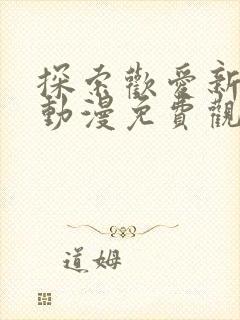 探索歡愛新
動漫免費觀
道姆